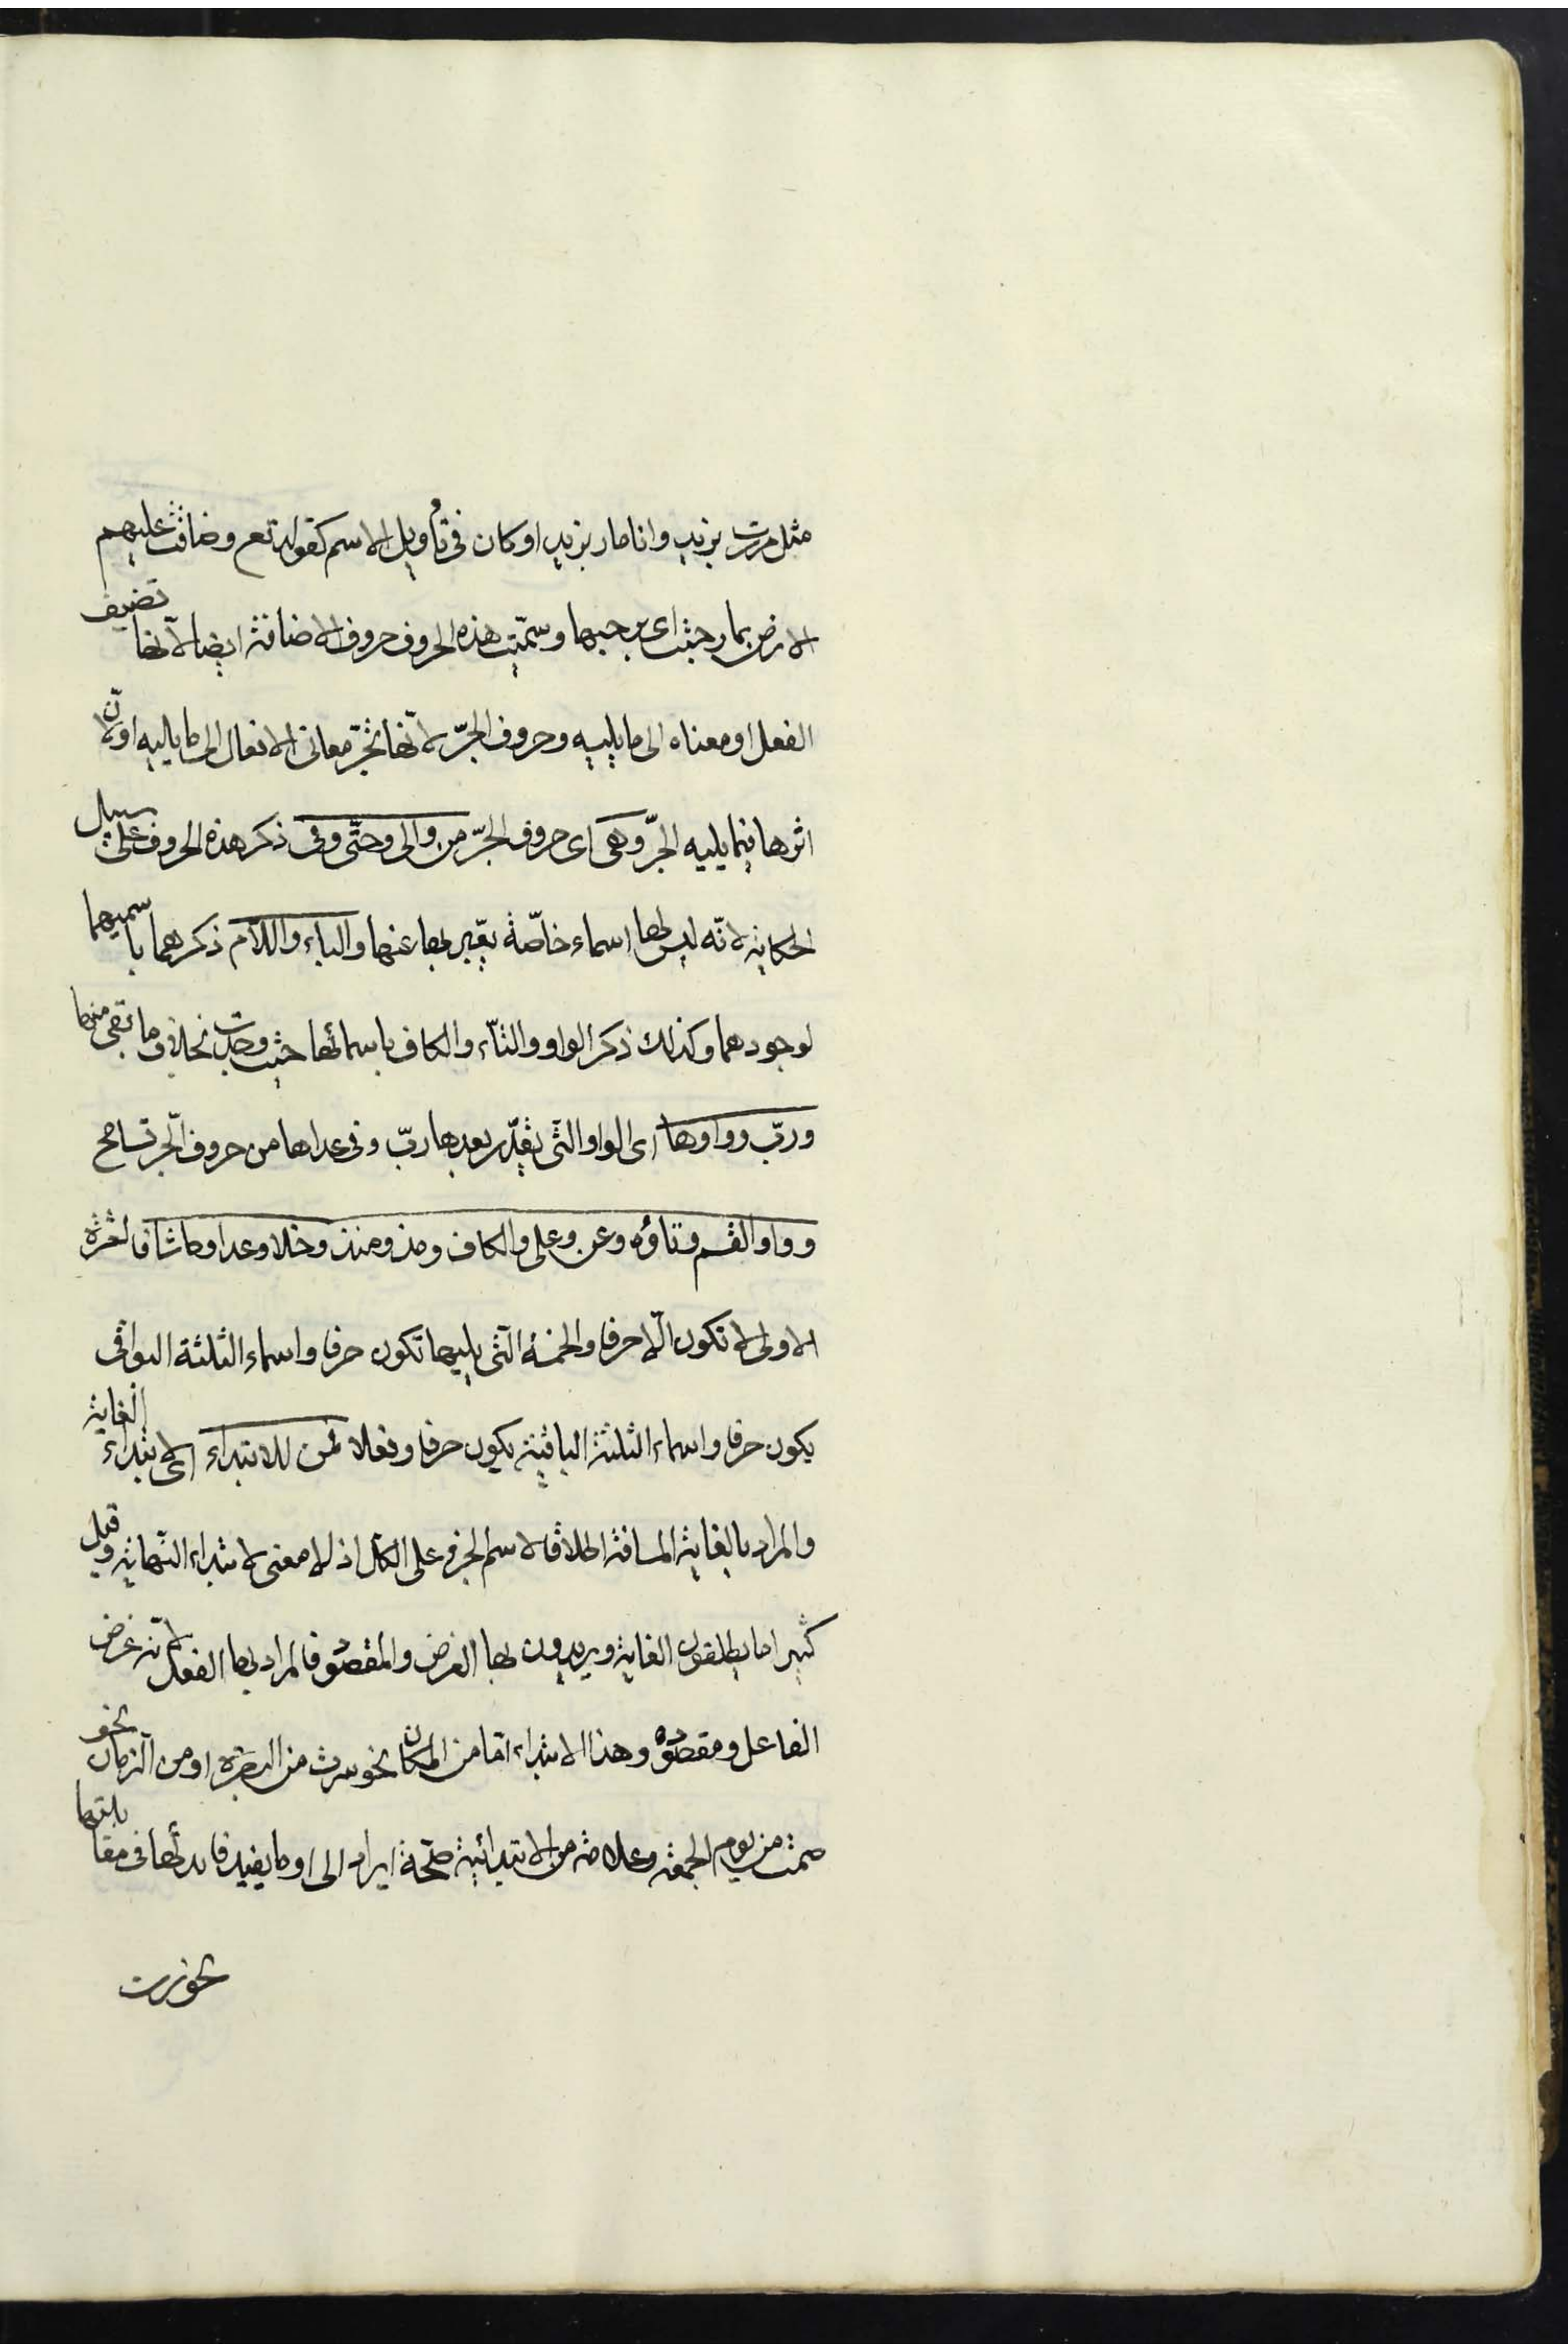 مثل مررت بزيد وانا مار بزيد او كان فى تأويل الاسم كقوله تع وضاقت عليهم
الارض بما رحبت اى برحبها وسمّيت هذه الحروف حروف الاضافة ايضا لانّها تضيف
الفعل او معناه الى ما يليه وحروف الجرّ لانّها تجرّ معانى الافعال الى ما يليه او لانّ
اثرها فيما يليه الجرّ وهى اى حروف الجرّ من والى وحتّى وفى ذكر هذه الحروف على سبيل
الحكاية لانّه ليس لها اسماء خاصّة يعبّر بها عنها والباء واللّام ذكرهما باسميهما
لوجودهما وكذلك ذكر الواو والتّاء والكاف باسمائها حيث وجدت بخلاف ما بقى منها
وربّ وواوها اى الواو الّتى يقدّر بعدها ربّ وفى عداها من حروف الجرّ تسامح
وواو القسم وتاؤه وعن وعلى والكاف ومذ ومنذ وخلا وعدا وحاشا فالعشرة
الاولى لا تكون الّا حرفا والخمسة الّتى يليها تكون حرفا واسماء الثلثة البواقى
يكون حرفا واسماء الثلثة الباقية يكون حرفا وفعلا فمن للابتداء اى لابتداء الغاية
والمراد بالغاية المسافة اطلاقا لاسم الجزء على الكلّ اذ لا معنى لابتداء النّهاية وقيل
كثيرا ما يطلقون الغاية ويريدون بها الغرض والمقصود فالمراد بها الفعل لانّه غرض
الفاعل ومقصوده وهذا الابتداء امّا من المكان نحو سرت من البصرة او من الزمان نحو
صمت من يوم الجمعة وعلامة من الابتدائية صحّة ايراد الى او ما يفيد فائدتها فى مقابلتها
نحو سرت